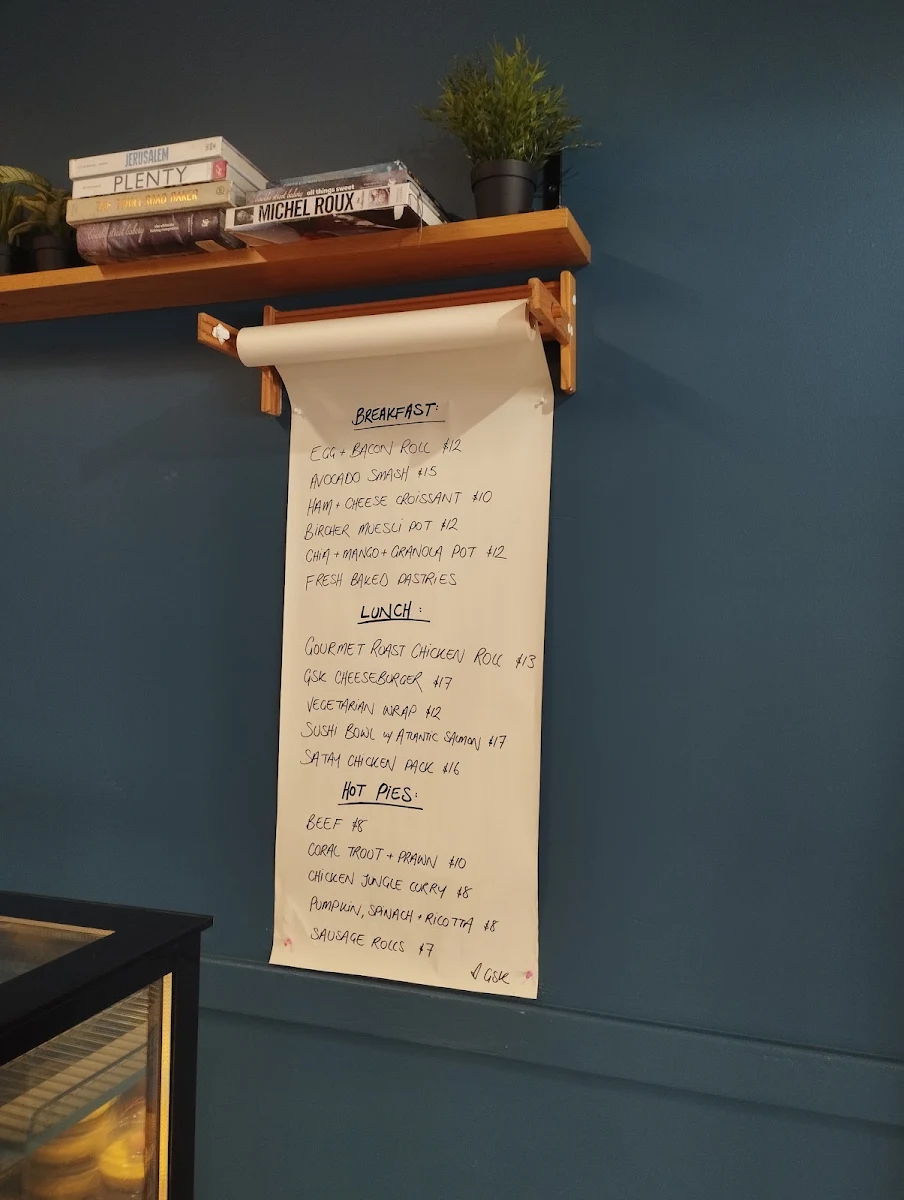 JERUSALEM
PLENTY
all things sweet
MICHEL ROUX
BREAKFAST:
EGG + BACON ROLL $12
AVOCADO SMASH $15
HAM + CHEESE CROISSANT $10
BIRCHER MUESLI POT $12
CHIA + MANGO + GRANOLA POT $12
FRESH BAKED PASTRIES
LUNCH:
GOURMET ROAST CHICKEN ROLL $13
GSK CHEESEBURGER $17
VEGETARIAN WRAP $12
SUSHI BOWL w/ ATLANTIC SALMON $17
SATAY CHICKEN PACK $16
HOT PIES:
BEEF $8
CORAL TROUT + PRAWN $10
CHICKEN JUNGLE CURRY $8
PUMPKIN, SPINACH + RICOTTA $8
SAUSAGE ROLLS $7
GSK